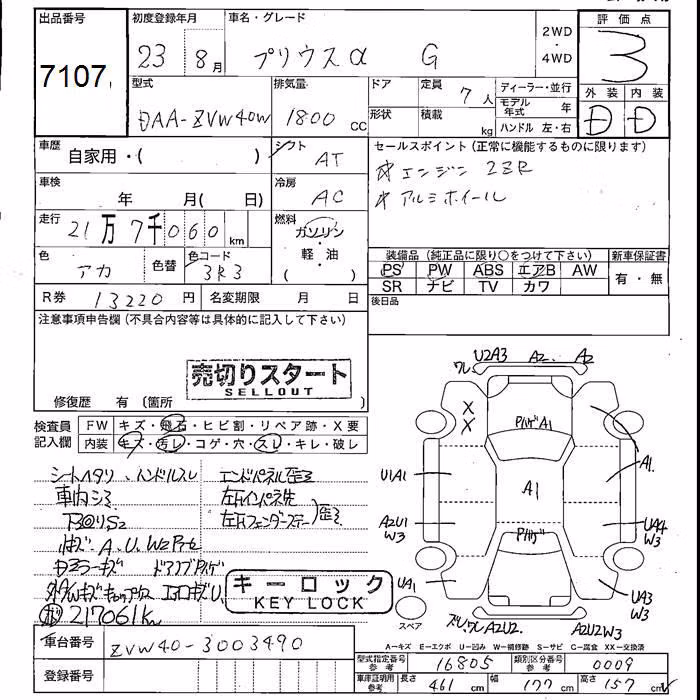 出品番号
7107
初度登録年月
23 8月
車名・グレード
プリウスα G
2WD
・
4WD
評価点
3
型式
DAA-ZVW40W
排気量
1800 cc
ドア
形状
定員 7人
積載 kg
ディーラー・並行
モデル年式 年
ハンドル 左・右
外装 内装
D D
車歴
自家用・( )
シフト
AT
セールスポイント (正常に機能するものに限ります)
☆エンジン 2ZR
☆アルミホイール
車検
年 月( 日)
冷房
AC
走行
21万7千060km
燃料
ガソリン
・
軽・油
( )
色
アカ
色替
色コード
3R3
装備品 (純正品に限り○をつけて下さい)
PS PW ABS エアB AW
SR ナビ TV カワ
新車保証書
有・無
R券 13220円
名変期限 月 日
後日品
注意事項申告欄 (不具合内容等は具体的に記入して下さい)
売切りスタート
SELLOUT
修復歴 有 (箇所 )
検査員記入欄
FW キズ・飛石・ヒビ割・リペア跡・X要
内装 キズ・汚レ・コゲ・穴・スレ・キレ・破レ
シートヘタリ ハンドルスレ
車内シミ
下回りS2
エンドパネル歪ミ
左Fインパネ先
左Fフェンダーステー
歪ミ
ミラーキズ
217061km
キーロック
KEY LOCK
U2A3 A2 A2
ワレ
X
X
A1
A1
A1
U1A1
A2U1
W3
UA4
W3
UA1
UA3
W3
A2U2 A2U2W3
スペア
A-キズ E-エクボ U-凹み W-補修跡 S-サビ C-腐食 XX-交換済
車台番号
ZVW40-3003490
登録番号
型式指定番号 参考 16805
類別区分番号 参考 0009
車庫証明用 参考 長さ 461cm 幅 177cm 高さ 157cm